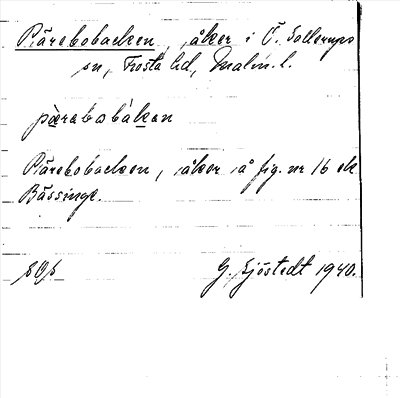 Pärebobacken, åker i Ö. Sallerups
sn, Frosta hd, Malm. l.
pærebobaken
Pärebobacken, åker å fig. nr 16 ek
Bässinge.
G. Sjöstedt 1940.